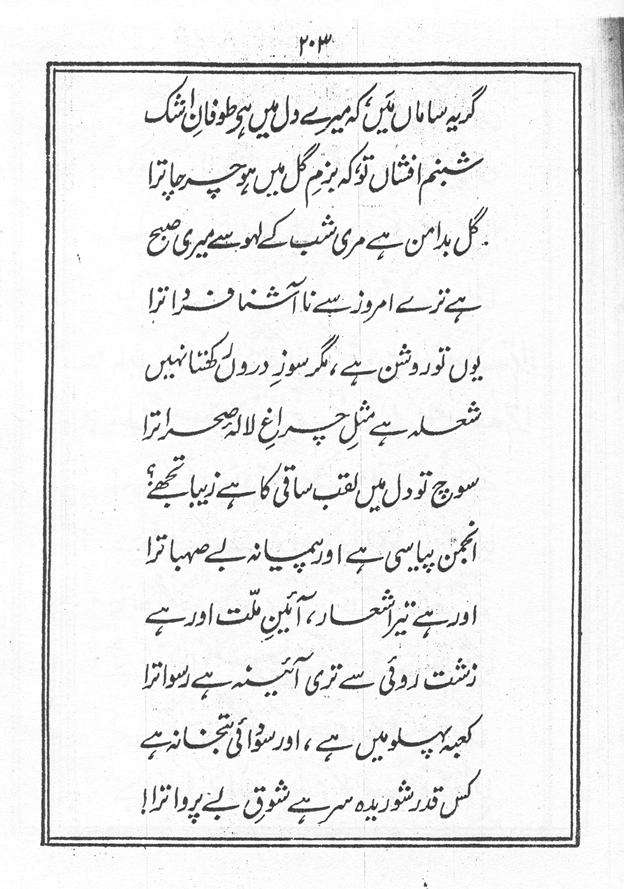 ۲۰۳
گریہ ساماں مَیں، کہ میرے دل میں ہے طوفانِ اشک
شبنم افشاں تو، کہ بزمِ گل میں ہو چرچا ترا
گل بدامن ہے مری شب کے لہو سے میری صبح
ہے ترے امروز سے نا آشنا فردا ترا
یوں تو روشن ہے، مگر سوزِ دروں رکھتا نہیں
شعلہ ہے مثلِ چراغِ لالۂ صحرا ترا
سوچ تو دل میں لقب ساقی کا ہے زیبا تجھے؟
انجمن پیاسی ہے اور پیمانہ بے صہبا ترا
اور ہے تیرا شعار، آئینِ ملّت اور ہے
زشت روئی سے تری آئینہ ہے رسوا ترا
کعبہ پہلو میں ہے، اور سودائیِ بتخانہ ہے
کس قدر شوریدہ سر ہے شوقِ بے پروا ترا!